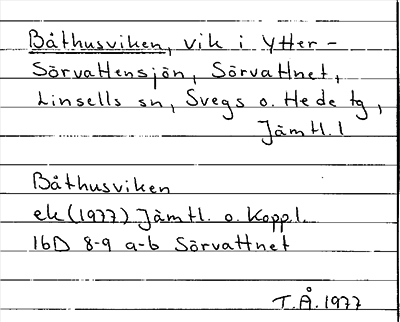 Båthusviken, vik i Ytter-
Sörvattensjön, Sörvattnet,
Linsells sn, Svegs o. Hede tg,
Jämtl. l
Båthusviken
ek (1977) Jämtl. o. Koppl.
16D 8-9 a-b Sörvattnet
T.Å. 1977